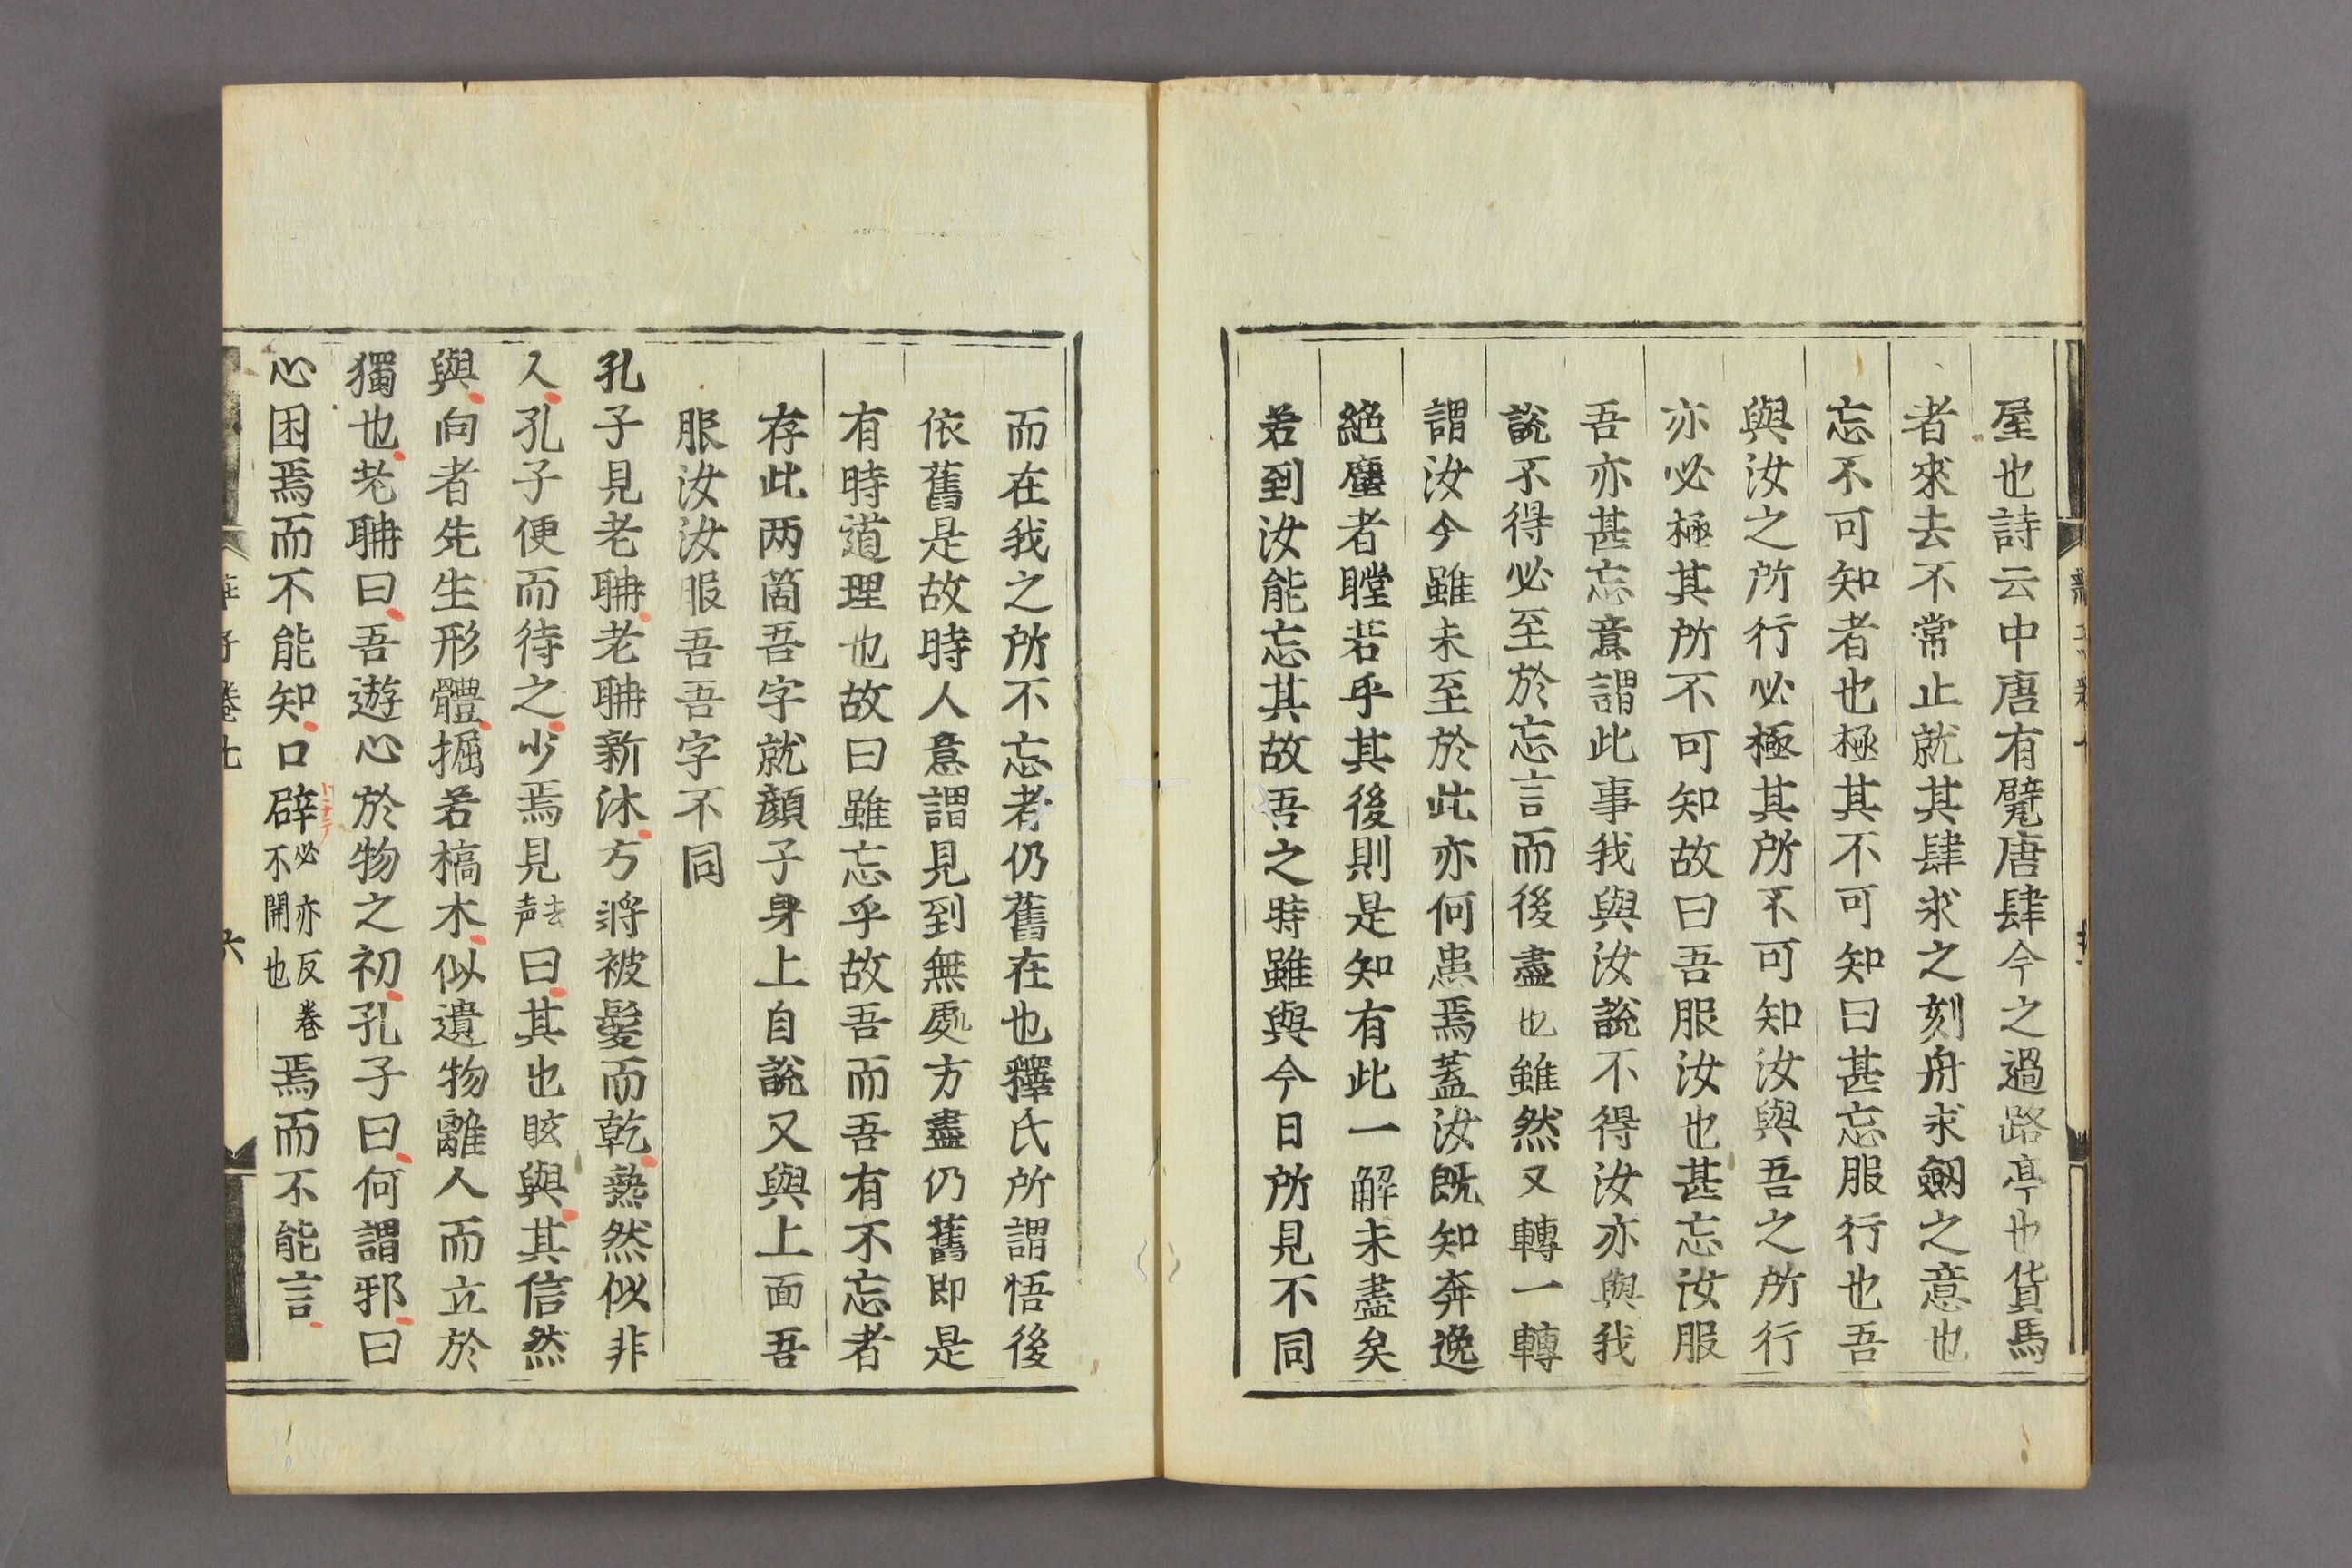 屋也詩云中唐有甓唐肆今之過路亭也貨馬
者來去不常止就其肆求之刻舟求劒之意也
忘不可知者也極其不可知曰甚忘服行也吾
與汝之所行必極其所不可知汝與吾之所行
亦必極其所不可知故曰吾服汝也甚忘汝服
吾亦甚忘意謂此事我與汝說不得汝亦與我
說不得必至於忘言而後盡也雖然又轉一轉
謂汝今雖未至於此亦何患焉蓋汝既知奔逸
絕塵者瞠若乎其後則是知有此一解未盡矣
若到汝能忘其故吾之時雖與今日所見不同
而在我之所不忘者仍舊在也釋氏所謂悟後
依舊是故時人意謂見到無處方盡仍舊即是
有時道理也故曰雖忘乎故吾而吾有不忘者
存此两箇吾字就顔子身上自說又與上面吾
服汝汝服吾吾字不同
孔子見老聃老聃新沐方將被髮而乾熱然似非
人孔子便而待之少焉見去声曰其也眩與其信然
與向者先生形體掘若槁木似遺物離人而立於
獨也老聃曰吾遊心於物之初孔子曰何謂邪曰
心困焉而不能知口辟必亦反卷不開也焉而不能言
子卷七
六